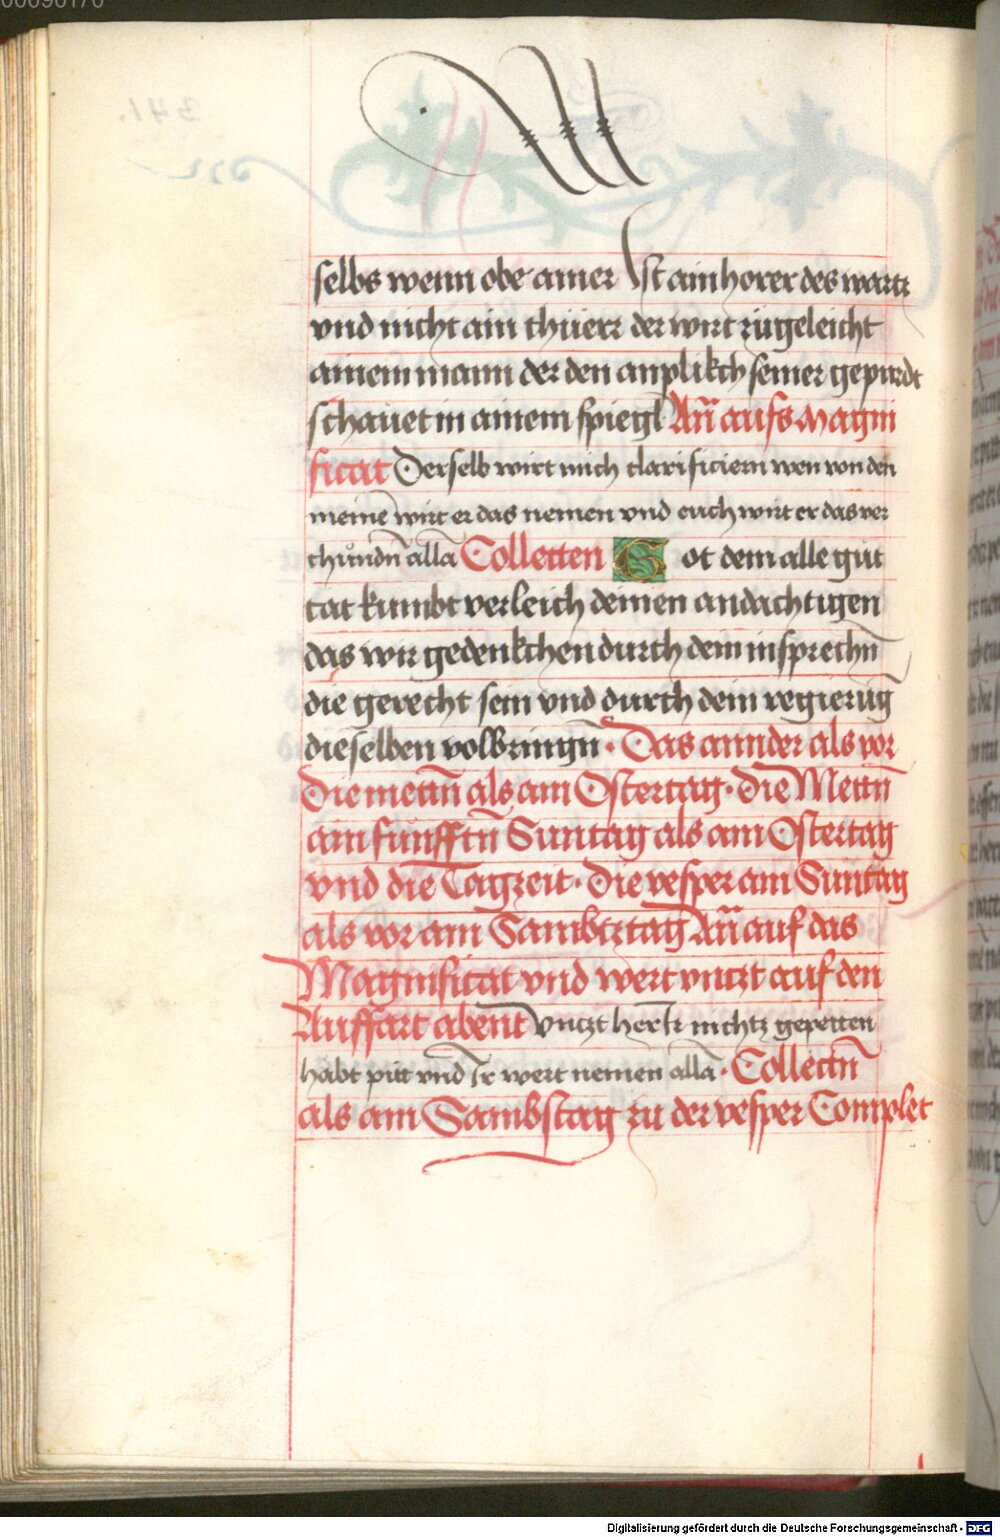 selbs wenn obe ainer Ist ain horer des wartz
vnd nicht ain thüerr der wirt zügeleicht
ainem mann der den anplikch seiner gepurdt
schauet in ainem spiegl An̄ aufs Magni
ficat Derselb wirt mich clarificiern wen von den
meinē wirt er das nemen vnd euch wirt er das ver
chündn̄ alla Colleten Got dem alle güt
tät kumbt verleich deinen andachtigen
das wir gedenkchen durch dein insprechn̄
die gerecht sein vnd durch dein regierūg
dieselben volbringn̄ · Das annder als vor
Die mettn̄ als am Ostertag · Die Mettn̄
am fünfftn̄ Suntag als am Ostertag
vnd die Tagzeit · Die vesper am Suntag
als vor am Sambtztag An̄ auf das
Magnificat vnd wert vnczt auf den
Auffart abent Vnczt herr ir nichtz gepetten
habt pitt vnd Ir wert nemen alla · Collectn̄
als am Sambstag zu der vesper Complet
Digitalisierung gefördert durch die Deutsche Forschungsgemeinschaft - DFG